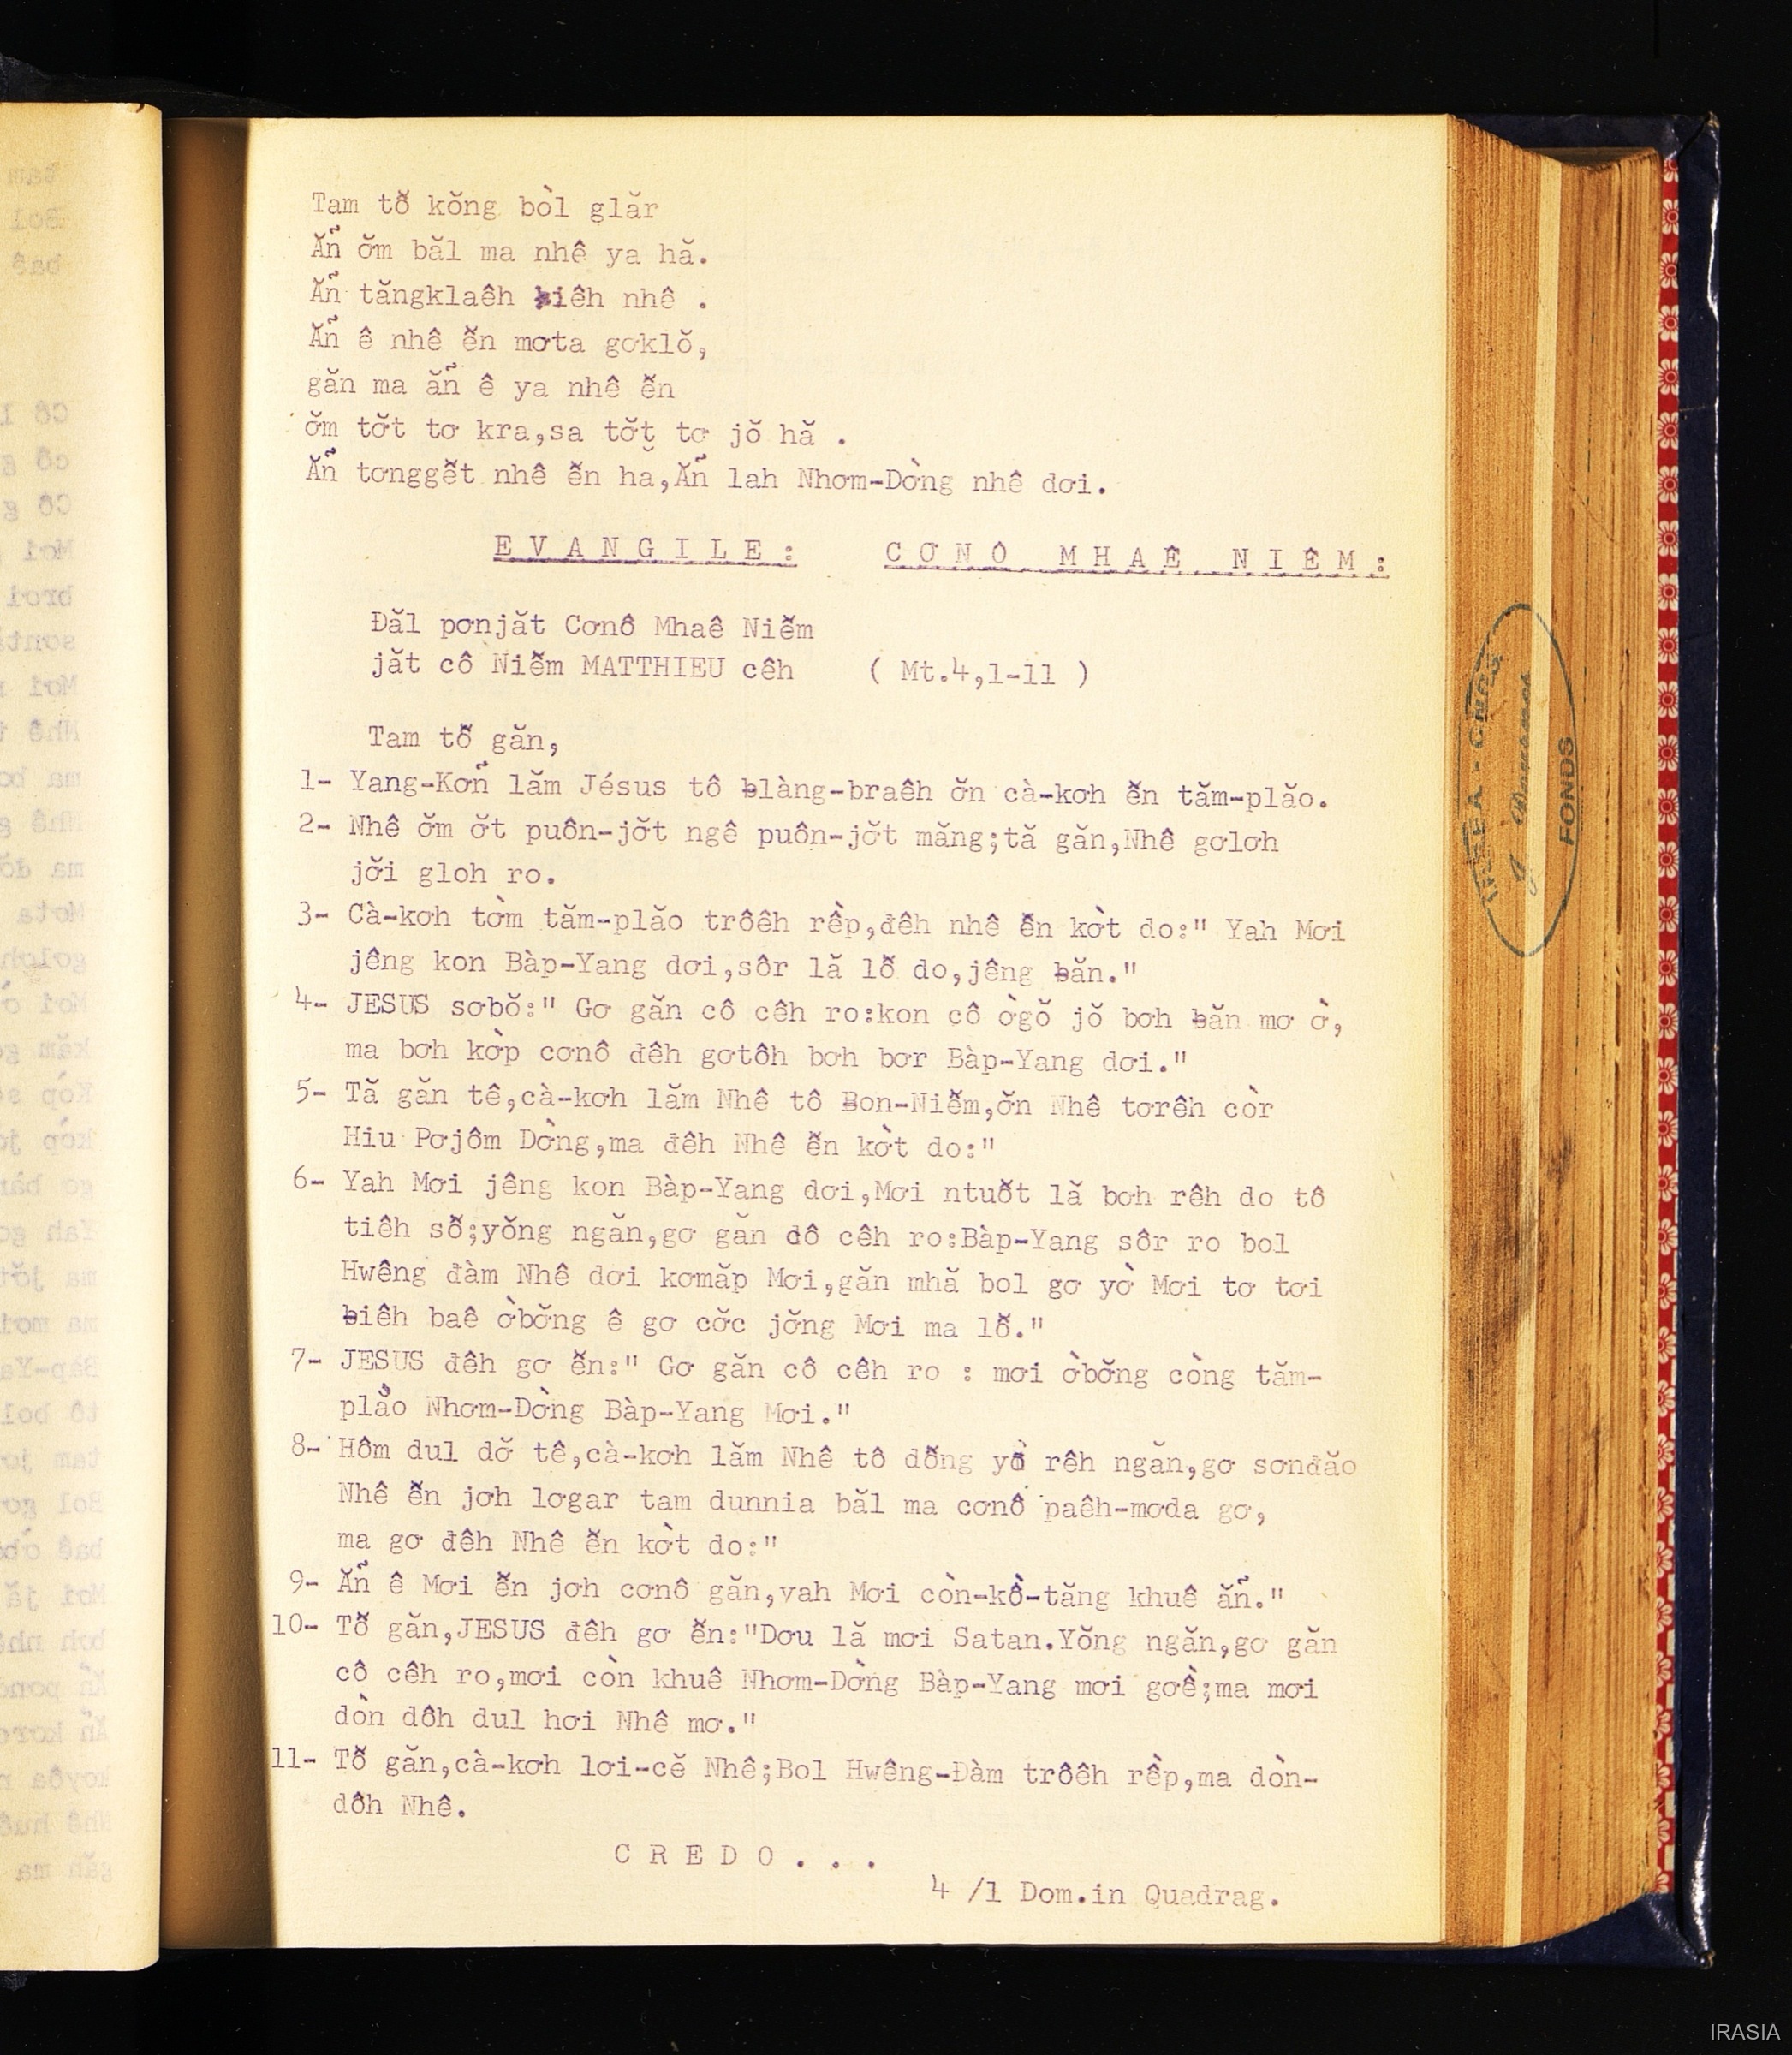 Tam tơ̆ kŏng bòl glăr
Ăñ ơ̆m băl ma nhê ya hă.
Ăñ tăngklaêh ƀiêh nhê .
Ăñ ê nhê ê̆n mơta gơklŏ,
găn ma ăñ ê ya nhê ê̆n
ơ̆m tơ̆t tơ kra,sa tơ̆t tơ jŏ hă .
Ăñ tơnggê̆t nhê ê̆n hă,Ăñ lah Nhơm-Dờng nhê dơi.
E V A N G I L E : C Ơ N Ô M H A Ê N I Ê M :
Đăl pơnjăt Cơnô Mhaê Niê̆m
jăt cô Niê̆m MATTHIEU cêh ( Mt.4,1-11 )
Tam tô̆ găn,
1- Yang-Kơñ lăm Jésus tô ƀlàng-braêh ơ̆n cà-kơh ê̆n tăm-plăo.
2- Nhê ơ̆m ơ̆t puôn-jơ̆t ngê puôn-jơ̆t măng;tă găn,Nhê gơlơh
jơ̆i gloh ro.
3- Cà-kơh tờm tăm-plăo trôêh rềp,đêh nhê ê̆n kờt do:" Yah Mơi
jêng kon Bàp-Yang dơi,sôr lă lô̆ do,jêng ƀăn."
4- JESUS sơbŏ:" Gơ găn cô cêh ro:kon cô ờgŏ jŏ bơh ƀăn mơ ờ,
ma bơh kờp cơnô đêh gơtôh bơh bơr Bàp-Yang dơi."
5- Tă găn tê,cà-kơh lăm Nhê tô Ƀon-Niê̆m,ơ̆n Nhê tơrêh còr
Hiu Pơjôm Dờng,ma đêh Nhê ê̆n kờt do:"
6- Yah Mơi jêng kon Bàp-Yang dơi,Mơi ntuô̆t lă bơh rêh do tô
tiêh sô̆;yŏng ngăn,gơ găn đô cêh ro:Bàp-Yang sôr ro bol
Hwêng đàm Nhê dơi kơmăp Mơi,găn mhă bol gơ yờ Mơi tơ tơi
ƀiêh baê ờbơ̆ng ê gơ cơ̆c jơ̆ng Mơi ma lô̆."
7- JESUS đêh gơ ê̆n:" Gơ găn cô cêh ro : mơi ờbơ̆ng còng tăm-
plăo Nhơm-Dờng Bàp-Yang Mơi."
8- Hôm dul dơ̆ tê,cà-kơh lăm Nhê tô đô̆ng yồ rêh ngăn,gơ sơnđăo
Nhê ê̆n jơh lơgar tam dunnia băl ma cơnô paêh-mơda gơ,
ma gơ đêh Nhê ê̆n kờt do:"
9- Ăñ ê Mơi ê̆n jơh cơnô găn,yah Mơi còn-kồ-tăng khuê ăñ."
10- Tô̆ găn,JESUS đêh gơ ê̆n:"Dơu lă mơi Satan.Yŏng ngăn,gơ găn
cô cêh ro,mơi còn khuê Nhơm-Dờng Bàp-Yang mơi gơề;ma mơi
dòn dôh dul hơi Nhê mơ."
11- Tô̆ găn,cà-kơh lơi-cĕ Nhê;Bol Hwêng-Đàm trôêh rềp,ma dòn-
dôh Nhê.
C R E D O . . .
4 /1 Dom.in Quadrag.
FONDS
IRASIA